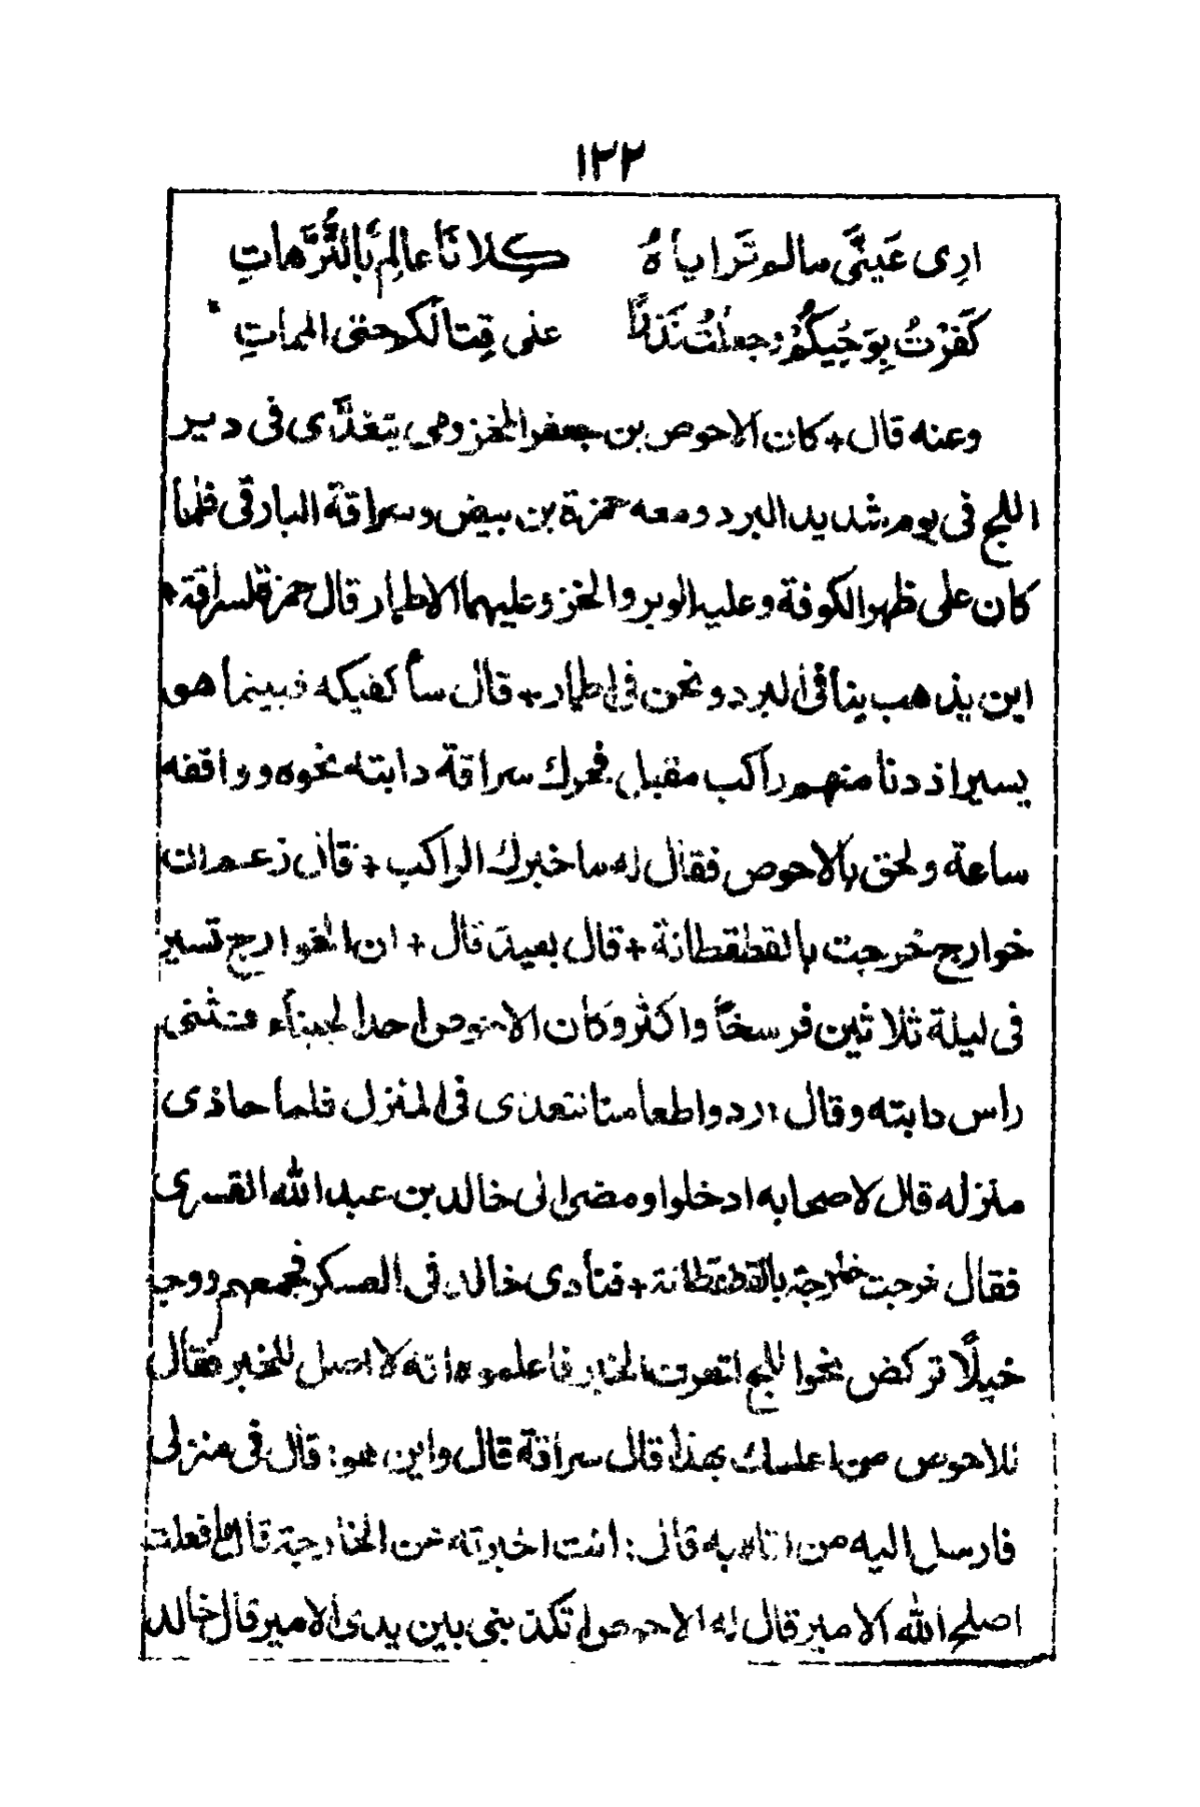 ١٢٢
ارِى عَينَىَّ مالم تَرَاياْهُ كِلانَا عالِمٌ بالتُّرَّهاتِ
كَفَرْتُ بِوَحْيِكُمْ وجعلْتُ نَذرًا على قِتالكم حتى المماتِ
وعنه قال + كان الاحوص بن جعفر المخزومى يتغذّى فى دير
اللج فى يوم شديد البرد ومعه حمزة بن بيض وسراقة البارقى فلما
كان على ظهر الكوفة وعليه الوبر والخز وعليهما الاطمار قال حمزة لسراقة +
اين يذهب بنا فى البرد ونحن فى اطمار + قال سأكفيكه فبينما هو
يسير اذ دنا منهم راكب مقبل فحرك سراقة دابته نحوه وواقفه
ساعة ولحق بالاحوص فقال له ما خبرك الراكب + قال زعم ان
خوارج خرجت بالقطقطانة + قال بعيد قال + ان الخوارج تسير
فى ليلة ثلاثين فرسخًا واكثر وكان الاحوص احد الجبناء فثنى
راس دابته وقال ردوا طعامنا نتغذى فى المنزل فلما حاذى
منزله قال لاصحابه ادخلوا ومضى الى خالد بن عبد الله القسرى
فقال خرجت خارجة بالقطقطانة + فنادى خالد فى العسكر فجمعهم ووجه
خيلًا تركض نحو اللج لتعرف الخبر فاعلموه انه لا اصل للخبر فقال
للاحوص من اعلمك بهذا قال سراقة قال واين هو : قال فى منزلى
فارسل اليه من اتاه به قال : انت اخبرته عن الخارجة قال ما فعلت
اصلح الله الامير قال له الاحوص اتكذبنى بين يدى الامير قال خالد